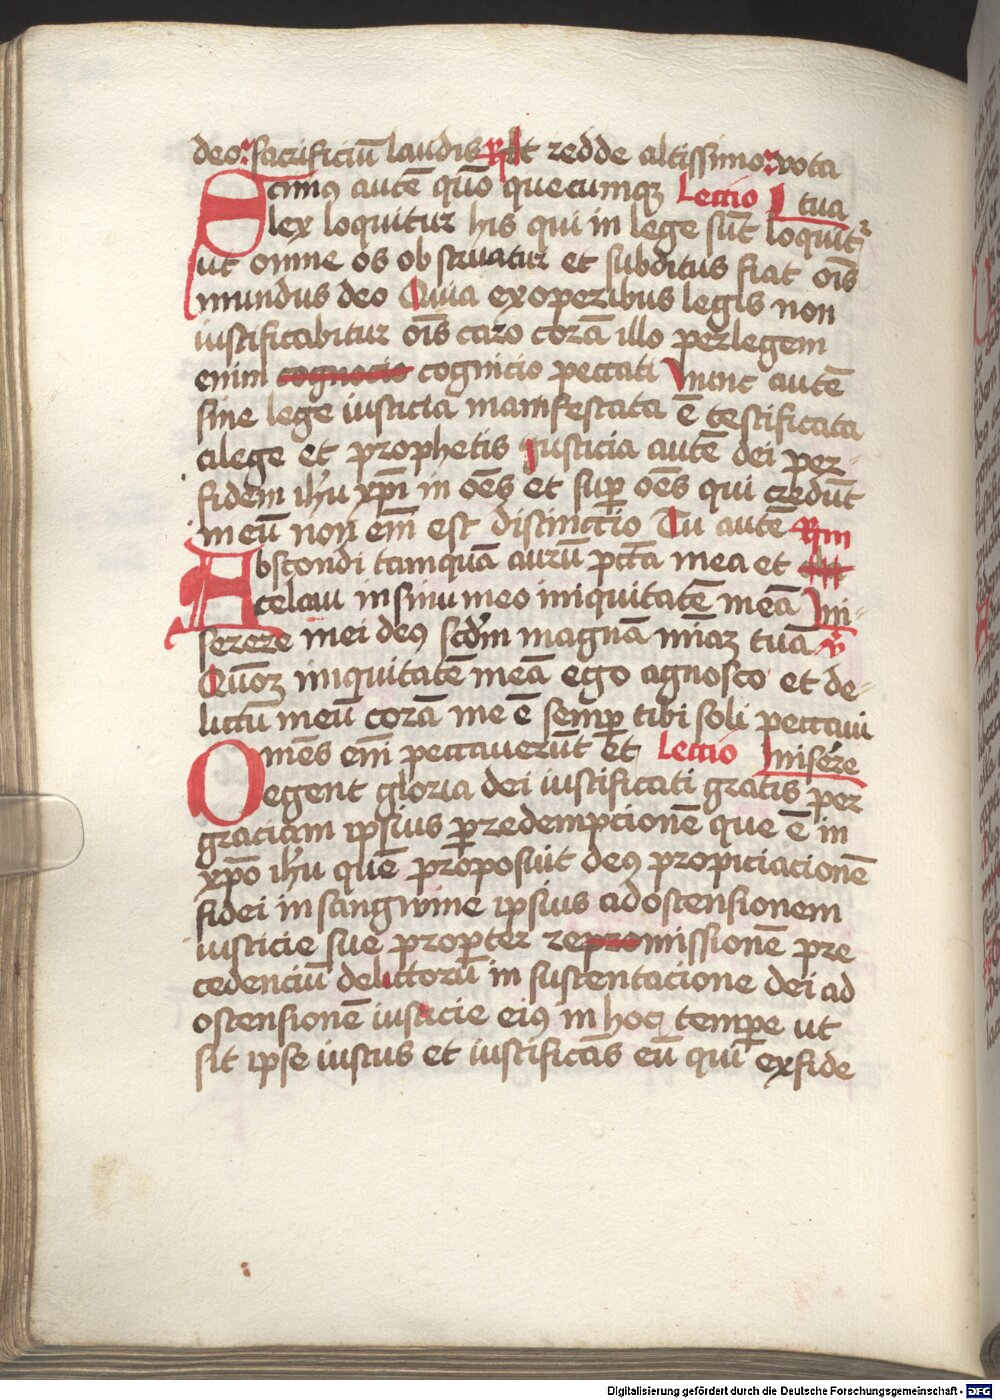 deo sacrificiū laudis R Et redde altissimo vota
Scimꝰ autē quō quecumqꝫ Lectio I tua
lex loquitur his qui in lege sūt loquit᷑
ut omne os obstruatur et subditus fiat oīs
mundus deo Quia ex operibus legis non
iustificabitur oīs caro corā illo per legem
enim cognocio cognicio peccati Nunc autē
sine lege iusticia manifestata ē testificata
a lege et prophetis Iusticia autē dei per
fidem ihu xp̄i in oēs et suꝑ oēs qui credūt
in eū non em̄ est distinctio Tu autē R m
Abscondi tamquā aurū pctā mea et
celaui in sinu meo iniquitatē meā Mi-
serere mei deꝰ scdm magnā miāꝫ tuā V
Quōꝫ iniquitatē meā ego agnosco et de-
lictū meū corā me ē semꝑ tibi soli peccaui
Omēs em̄ peccauerūt et Lectio misere
egent gloria dei iustificati gratis per
graciam ipsius ꝑ redempcionē que ē in
xp̄o ihu quē proposuit deꝰ propiciacionē
fidei in sangwine ipsius ad ostensionem
iusticie sue propter repromissionē pre
cedenciū delictorū in sustentacione dei ad
ostensionē iusticie eiꝰ in hoc temꝑe ut
sit ipse iustus et iustificās eū qui ex fide
Digitalisierung gefördert durch die Deutsche Forschungsgemeinschaft - DFG